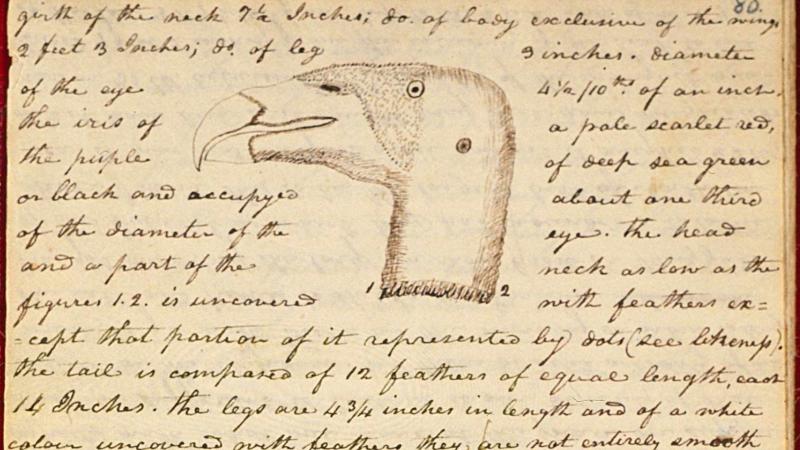 80.
girth of the neck 7½ Inches; do. of body exclusive of the wings
2 feet 3 Inches; do. of leg 3 inches. diameter
of the eye 4½/10ths of an inch.
the iris of a pale scarlet red,
the puple of deep sea green
or black and occupyed about one third
of the diameter of the eye. the head
and a part of the neck as low as the
figures 1.2. is uncovered with feathers ex=
=cept that portion of it represented by dots (see likeness).
1 2
the tail is composed of 12 feathers of equal length, each
14 Inches. the legs are 4¾ inches in length and of a white
colour uncovered with feathers they are not entirely smooth